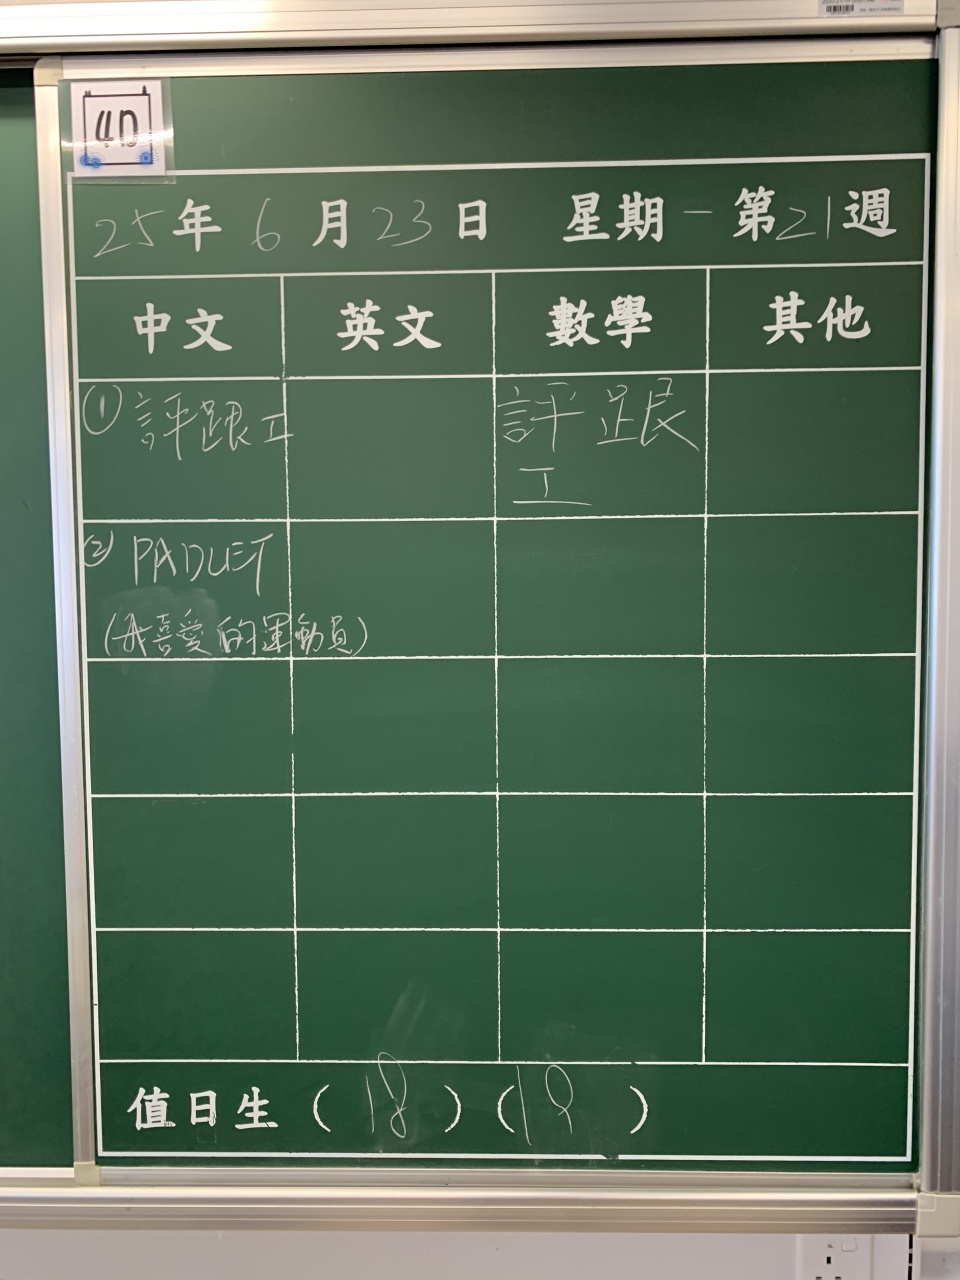 4D
25年 6月23日 星期一 第21週
中文 英文 數學 其他
① 評跟工
評跟
工
② PADLET
(我喜愛的運動員)
值日生 ( 18 ) ( 19 )